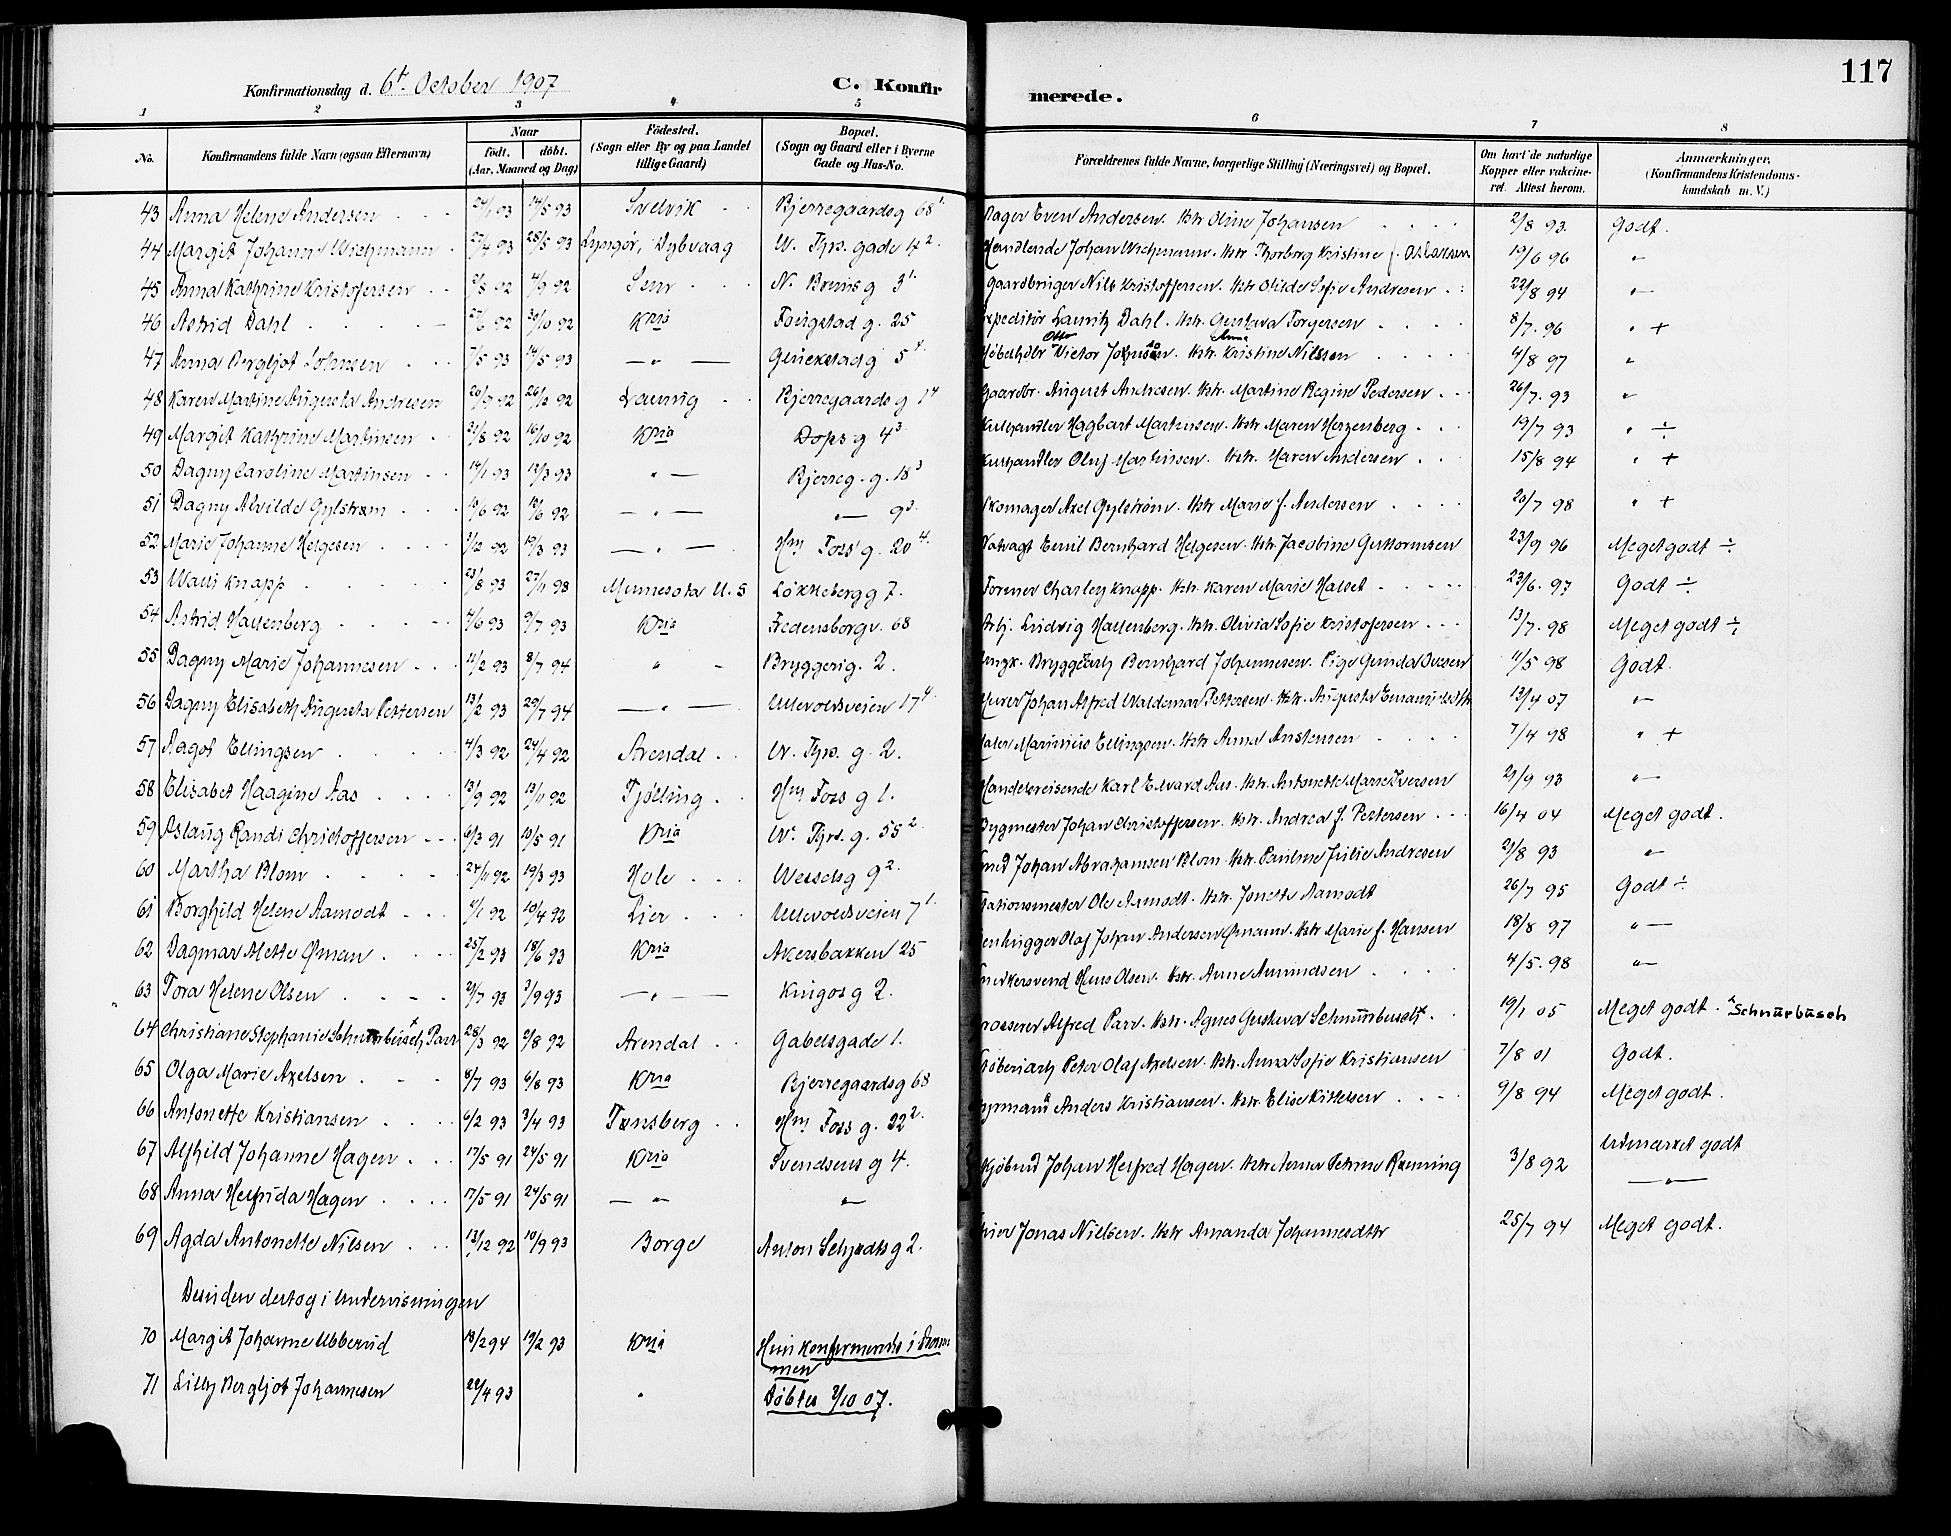 117
Konfirmationsdag d. 6t October 1907
C. Konfirmerede.
1 2 3 4 5 6 7 8
No. Konfirmandens fulde Navn (ogsaa Efternavn) Naar født. døbt. (Aar, Maaned og Dag) Födested. (Sogn eller By og paa Landet tillige Gaard) Bopæl. (Sogn og Gaard eller i Byerne Gade og Hus-No. Forældrenes fulde Navne, borgerlige Stilling (Næringsvei) og Bopæl. Om havt de naturlige Kopper eller vakcineret. Attest herom. Anmærkninger, (Konfirmandens Kristendomskundskab m. V.)
43 Anna Helene Andersen 24/1 93 14/5 93 Svelvik Bjerregaardsg 68 Even Andersen. Hstr Oline Johansen 2/8 93. Godt.
44 Margit Johanne Wichmann 27/4 93 28/5 93 Lyngör, Dybvaag W. Thrs. gade 4 2. Handlende Johan Wichmann. Hstr Thorborg Kristine f. 19/6 96 "
45 Anna Kathrine Kristofersen 4/9 92 N. Brunsg 3 Gaardbruger Nils Kristoffersen. Hstr Olilde Sofie Andresen 22/8 94 "
46 Astrid Dahl 30/10 92 Kria Fougstad g. 25 Expeditör Lauritz Dahl. Hstr. Gustava Torgersen 8/7. 96 " +
47 Anna Bergljot Johnsen 7/5 93 14/5 93 — " — Glückstad g 5 4. Otto Victor Johnsen. Hstr. Anna Kristine Nilssen 4/8 97 "
48 Karen Martine Augusta Andresen 26/12 92 Bjerregaards g 14 Gaardbr. August Andresen. Hstr. Martine Regine Pedersen 26/7. 93 "
49 Margit Kathrine Martinsen 31/8 92 16/10 92 Kria Dops g 4 3. Kulhandler Hagbart Martinsen. Hstr Maren Herzenberg 19/7 93 " ÷
50 Dagny Caroline Martinsen 14/1 93 12/3 93 " — Bjerreg. g. 18 3 Kulhandler Oluf Martinsen. Hstr. Maren Andersen 15/8 94 " +
51 Dagny Alvilde Gylstrøm — " — " — 9 3. Skomager Axel Gylstrøm. Hstr Marie f. Andersen 20/7 98 " +
52 Marie Johanne Helgesen 3/12 92 19/3 93 — " — Hm Foss' g. 20 4. Natvagt Emil Bernhard Helgesen. Hstr. Jacobine Guttormsen 23/9 96 Meget godt ÷
53 Walli Knapp 23/8 93 27/11 98 Minnesota U. S Løkkeberg g 7. Charley Knapp. Hstr. Karen Marie Halset 23/6. 97 Godt ÷
54 Astrid Hallenberg 4/6 93 9/7 93 Kria Fredensborgv. 68 Arbj. Ludvig Hallenberg. Hstr. Olivia Sofie Kristofersen 13/7. 98 Meget godt ÷
55 Dagny Marie Johannesen 11/2 93 8/7 94 " — Bryggerig. 2. Ungk. Bryggearb Bernhard Johannesen. Pige Gunda Iversen 11/5 98 Godt.
56 Dagny Elisabeth Augusta Pettersen 13/2 93 29/7 94 — " — Ullevoldsveien 17 4. Murer Johan Alfred Waldemar Pettersen. Hstr. Augusta 13/4 07 "
57 Aagot Ellingsen 4/3 92 24/4 92 Arendal W. Thrs. g. 2. Maler Marinius Ellingsen. Hstr Anna Anstensen 7/4 98 " +
58 Elisabet Haagine Aas 13/9 92 13/11 92 Tjölling Hm Foss g 1. Handelsreisende Karl Edvard Aas. Hstr. Antonette Marie Iversen 21/9 93 "
59 Aslaug Randi Christoffersen 6/3 91 10/5 91 Kria W. Thrs. g. 55 2. Bygmester Johan Christoffersen. Hstr. Andrea f. Pettersen 16/4 04 Meget godt.
60 Martha Blom 24/11 92 19/3 93 Hole Wesselsg 9 2. Smed Johan Abrahamsen Blom. Hstr. Pauline Julie Andresen 21/8 93 "
61 Borghild Helene Aamodt 4/1 92 10/4 92 Lier Ullevoldsveien 7 1. Stationsmester Ole Aamodt. Hstr. Jonette Aamodt 26/7 95 Godt ÷
62 Dagmar Mette Öman 25/2 93 18/6 93 Kria Akersbakken 25 Stenhugger Olaf Johan Andersen Ömann. Hstr Marie f. Hansen 18/8 97 " —
63 Tora Helene Olsen 21/7 93 3/9 93 — " — Kingos g 2. Snedkersvend Hans Olsen. Hstr. Anne Amundsen 4/5. 98 "
64 Christiane Stephanie Schnurbusch x Parr 28/3 92 2/8 92 Arendal Gabelsgade 1. Grosserer Alfred Parr. Hstr. Agnes Gustava Schnürbusch x 19/1 05 Meget godt. x Schnürbusch
65 Olga Marie Axelsen 8/7 93 6/8 93 Kria Bjerregaardsg 68 Støberiarb Peter Olaf Axelsen. Hstr. Anna Sofie Kristiansen 7/8 01 Godt.
66 Antonette Kristiansen 6/2 93 3/4 93 Tønsberg Hm Foss g. 22 2. Styrmand Anders Kristiansen. Hstr. Elise Kittelsen 9/8 94 Meget godt.
67 Alfhild Johanne Hagen 17/5 91 24/5 91 Kria Svendsens g 4. Kjøbmd Johan Herfred Hagen. Hstr. Anna Petrine Rønning 3/8 92 Udmærket godt
68 Anna Herfrida Hagen 17/5 91 24/5 91 — " " — " —
69 Agda Antonette Nilsen 13/12 92 10/9 93 Borge Anton Schjødts g 2. Jonas Nielsen. Hstr Amanda Johannesdtr 25/7 94 Meget godt.
Desuden deltog i Undervisningen
70 Margit Johanne Ubberud 18/2 94 19/2 93 Kria Hun konfirmeredes i Drammen
71 Lilly Bergljot Johannesen 22/4 93 " Døbtes 2/10 07.